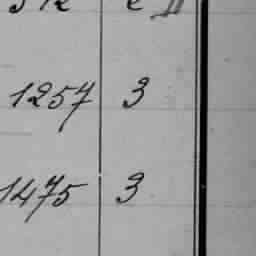 1257 3
1475 3